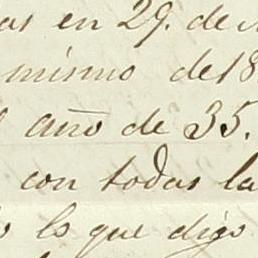 as en 29. de
mismo de 18
año de 35.
con todas la
lo que digo